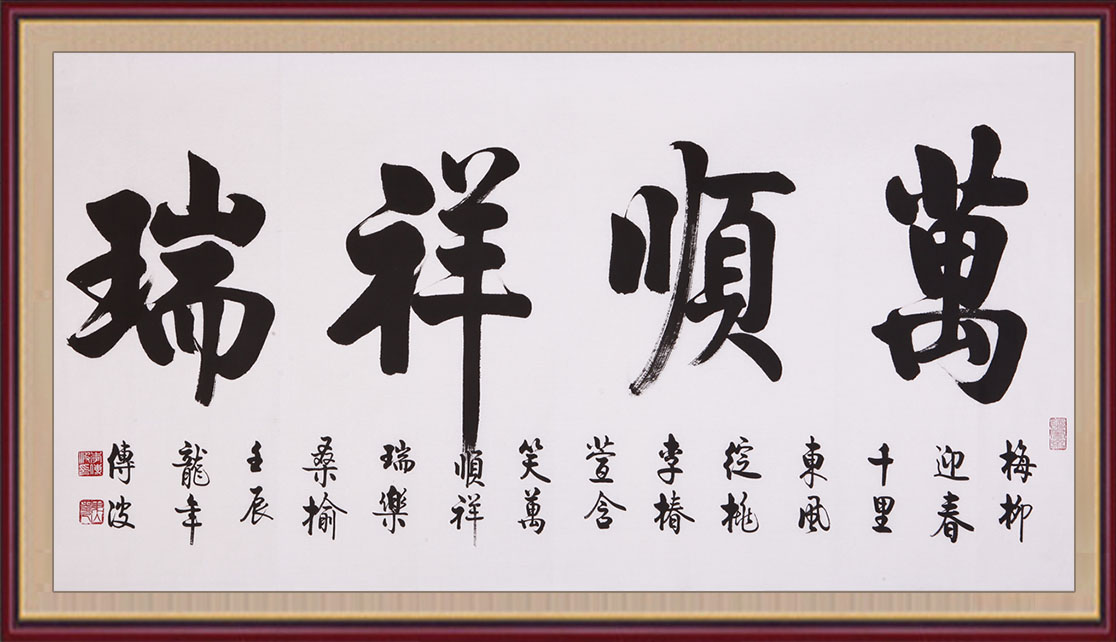 萬順祥瑞
梅柳
迎春
千里
東風
綻桃
李椿
萱含
笑萬
順祥
瑞樂
桑榆
壬辰
龍年
傳波